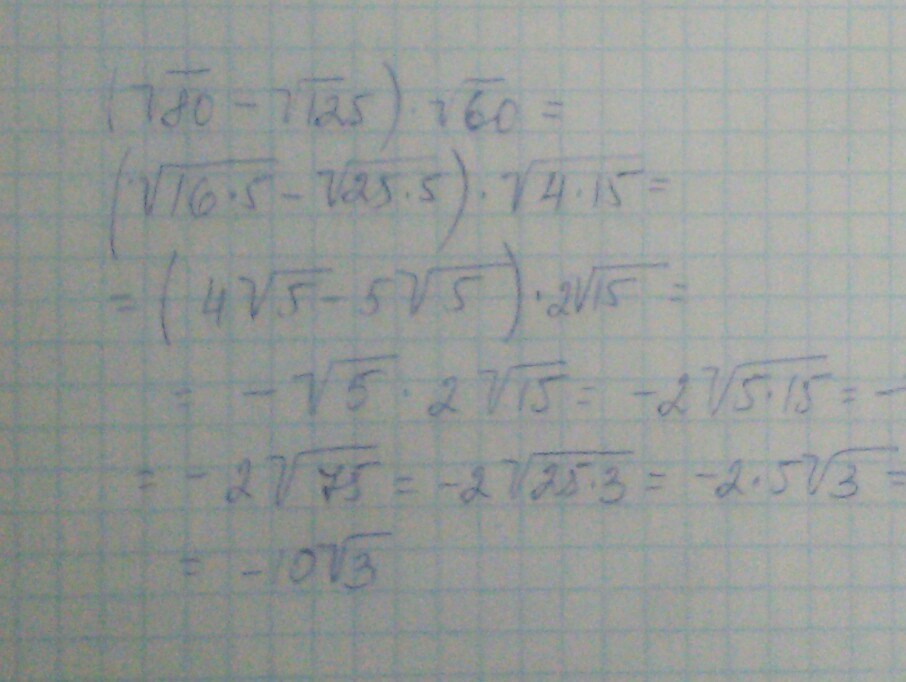 (√80 − √125) · √60 =
(√16·5 − √25·5) · √4·15 =
= (4√5 − 5√5) · 2√15 =
= −√5 · 2√15 = −2√5·15 = −
= −2√75 = −2√25·3 = −2·5√3 =
= −10√3